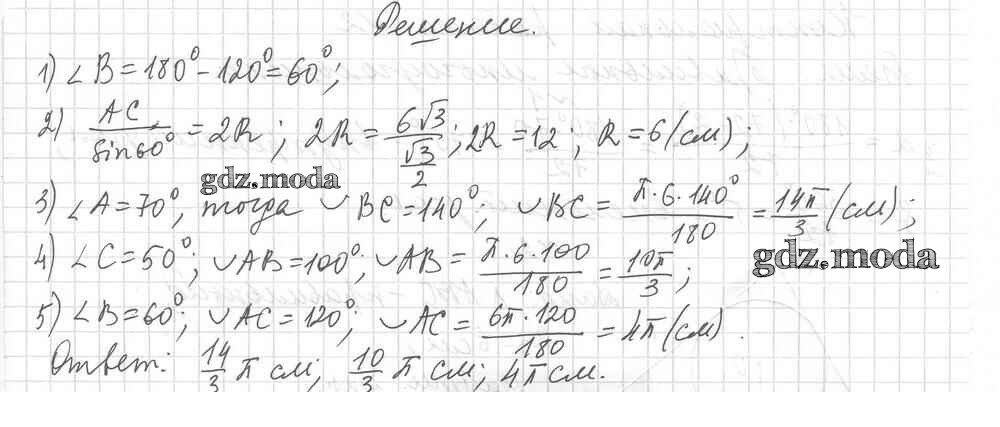 Решение.
1) ∠B = 180° - 120° = 60°;
2) AC/sin60° = 2R; 2R = 6√3/(√3/2); 2R = 12; R = 6 (см);
gdz.moda
3) ∠A = 70°, тогда ◡BC = 140°; ◡BC = π·6·140°/180 = 14π/3 (см);
4) ∠C = 50°; ◡AB = 100°; ◡AB = π·6·100/180 = 10π/3;
gdz.moda
5) ∠B = 60°; ◡AC = 120°; ◡AC = 6π·120/180 = 4π (см).
Ответ: 14/3 π см; 10/3 π см; 4π см.